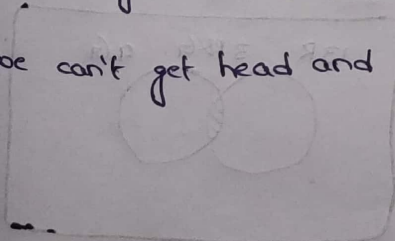 can't get head and